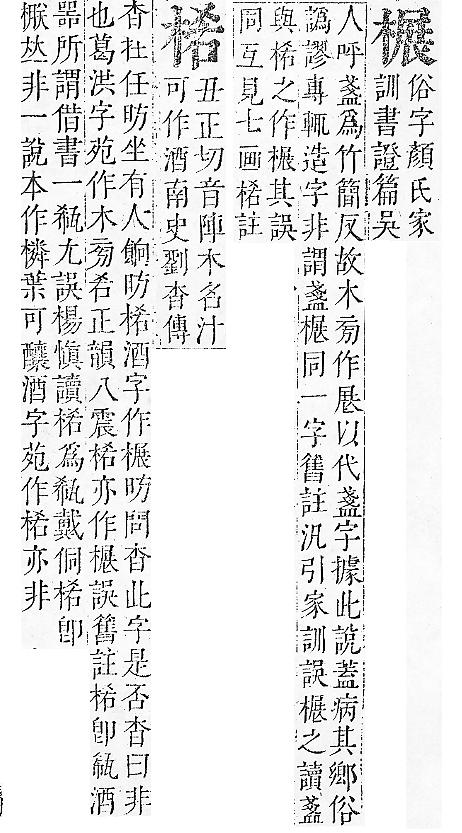 榐
俗字顏氏家
訓書證篇吳
人呼盞爲竹簡反故木旁作展以代盞字據此說蓋病其鄉俗
譌謬專輒造字非謂盞榐同一字舊註汎引家訓誤榐之讀盞
與桸之作榐其誤
同互見七画桸註
桸
丑正切音陣木名汁
可作酒南史劉杳傳
杳杜任昉坐有人餉昉桸酒字作榐昉問杳此字是否杳曰非
也葛洪字苑作木旁希正韻八震桸亦作榐誤舊註桸卽瓻酒
器所謂借書一瓻尤誤楊愼讀桸爲瓻戴侗桸卽
非一說本作橉葉可釀酒字苑作桸亦非